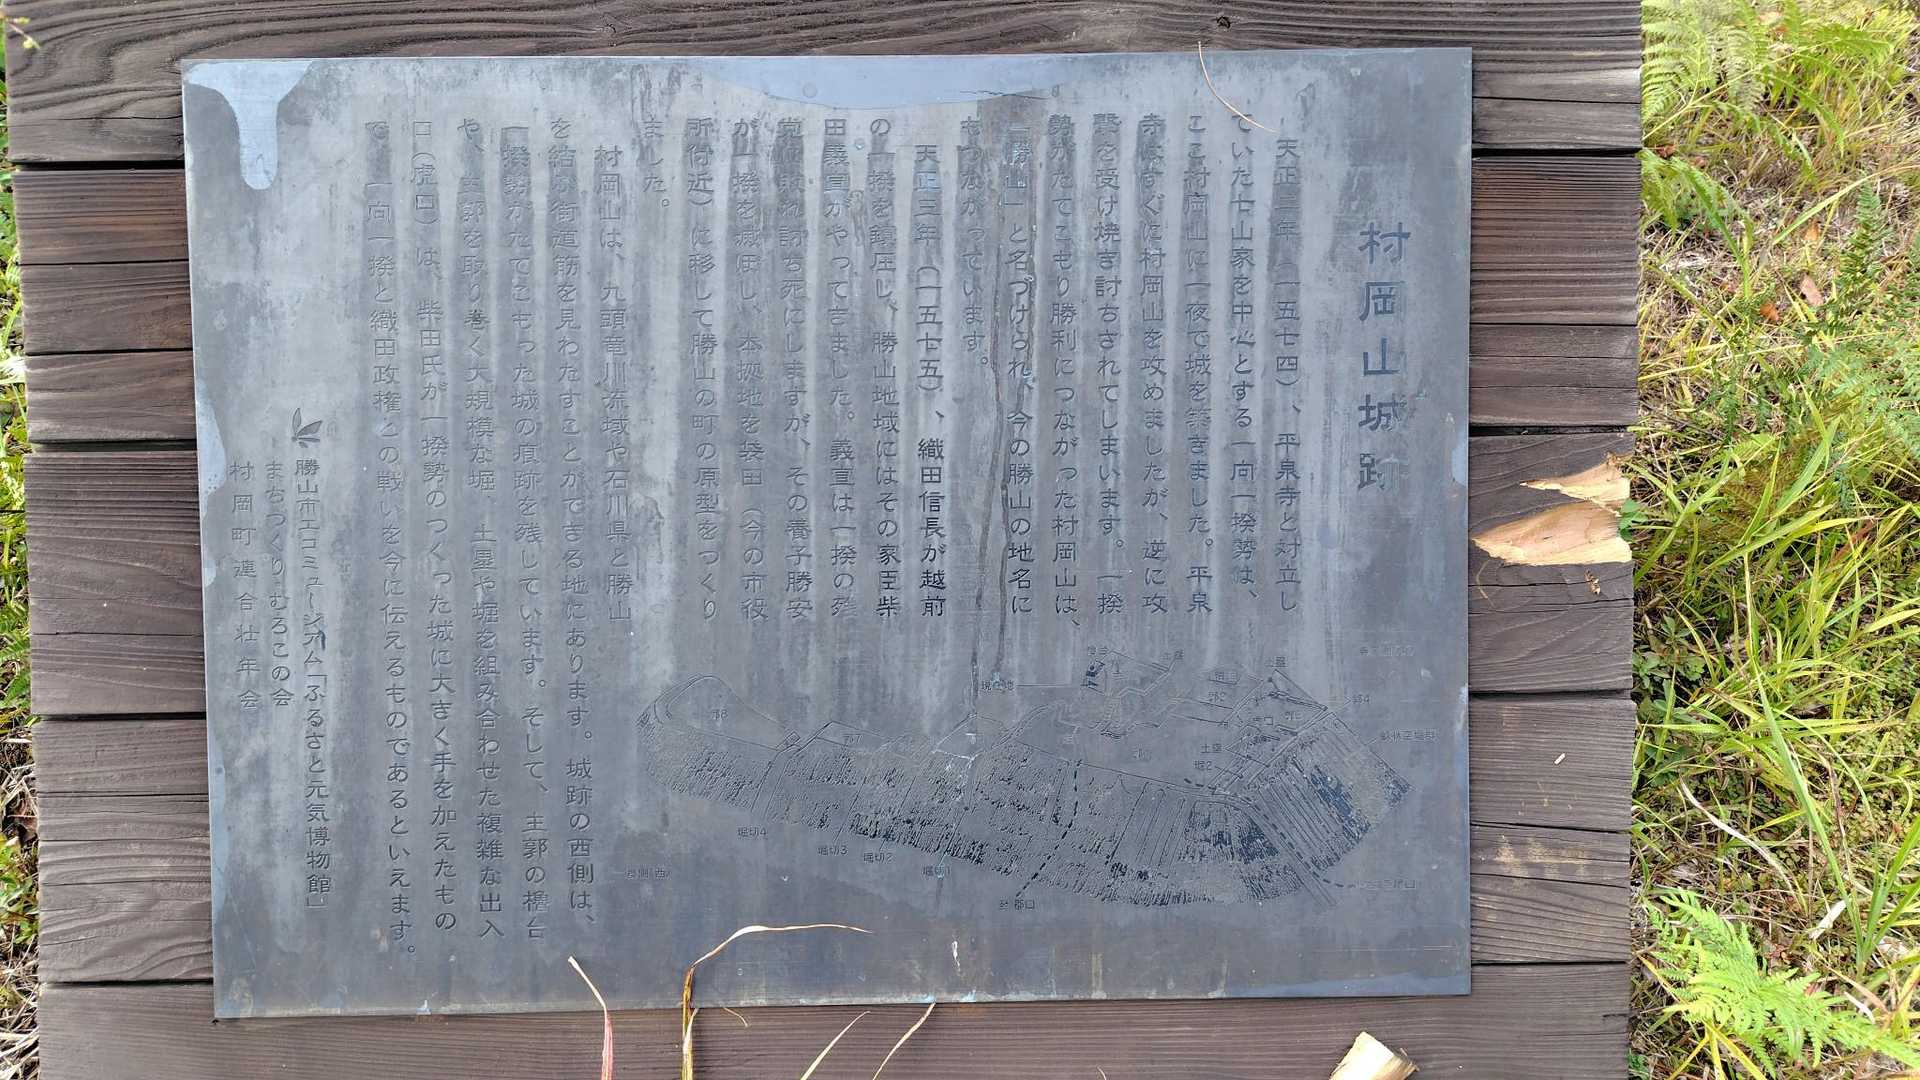 村岡山城跡
天正二年(一五七四)、平泉寺と対立し
ていた七山家を中心とする一向一揆勢は、
ここ村岡山に一夜で城を築きました。平泉
寺はすぐに村岡山を攻めましたが、逆に攻
撃を受け焼き討ちされてしまいます。一揆
勢がたてこもり勝利につながった村岡山は、
「勝山」と名づけられ、今の勝山の地名に
もつながっています。
天正三年(一五七五)、織田信長が越前
の一揆を鎮圧し、勝山地域にはその家臣柴
田義宣がやってきました。義宣は一揆の残
党に敗れ討ち死にしますが、その養子勝安
が一揆を滅ぼし、本拠地を袋田(今の市役
所付近)に移して勝山の町の原型をつくり
ました。
村岡山は、九頭竜川流域や石川県と勝山
を結ぶ街道筋を見わたすことができる地にあります。城跡の西側は、
一揆勢がたてこもった城の痕跡を残しています。そして、主郭の櫓台
や、主郭を取り巻く大規模な堀、土塁や堀を組み合わせた複雑な出入
口(虎口)は、柴田氏が一揆勢のつくった城に大きく手を加えたもの
で、一向一揆と織田政権との戦いを今に伝えるものであるといえます。
勝山市エコミュージアム「ふるさと元気博物館」
まちづくり・むろこの会
村岡町連合壮年会
櫓台
土塁
土塁
現在地
郭2
郭4
郭8
郭7
虎口
土塁
堀2
畝状空堀群
堀切4
堀切3
堀切2
堀切1